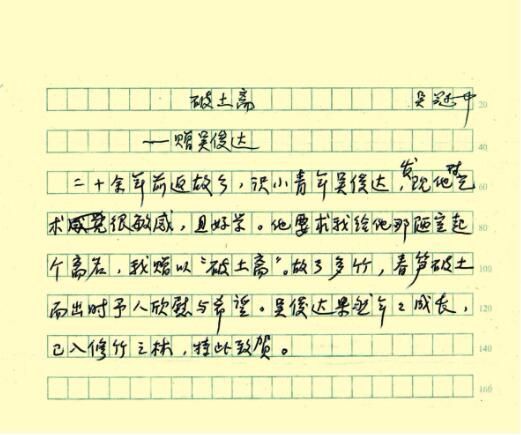 破土斋 吴冠中 20
——赠吴俊达 40
二十余年前返故乡，识小青年吴俊达，发现他对艺 60
术感觉很敏感，且好学。他要求我给他那陋室起 80
个斋名，我赠以“破土斋”。故乡多竹，春笋破土 100
而出时予人欣慰与希望。吴俊达果然年年成长， 120
已入修竹之林，特此致贺。 140
160